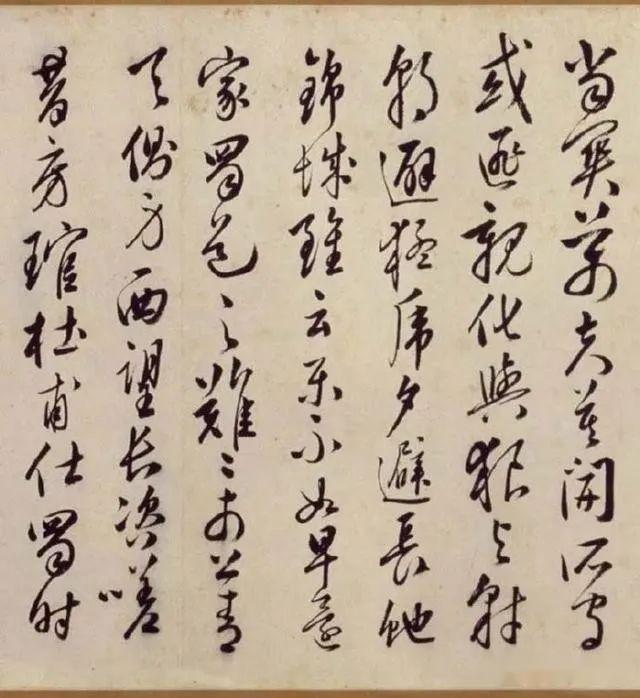 當關萬夫莫開所守
或匪親化與狼與豺
朝避猛虎夕避長蛇
錦城雖云樂不如早還
家蜀道之難〻於上青
天側身西望長咨嗟
昔房琯杜甫仕蜀時